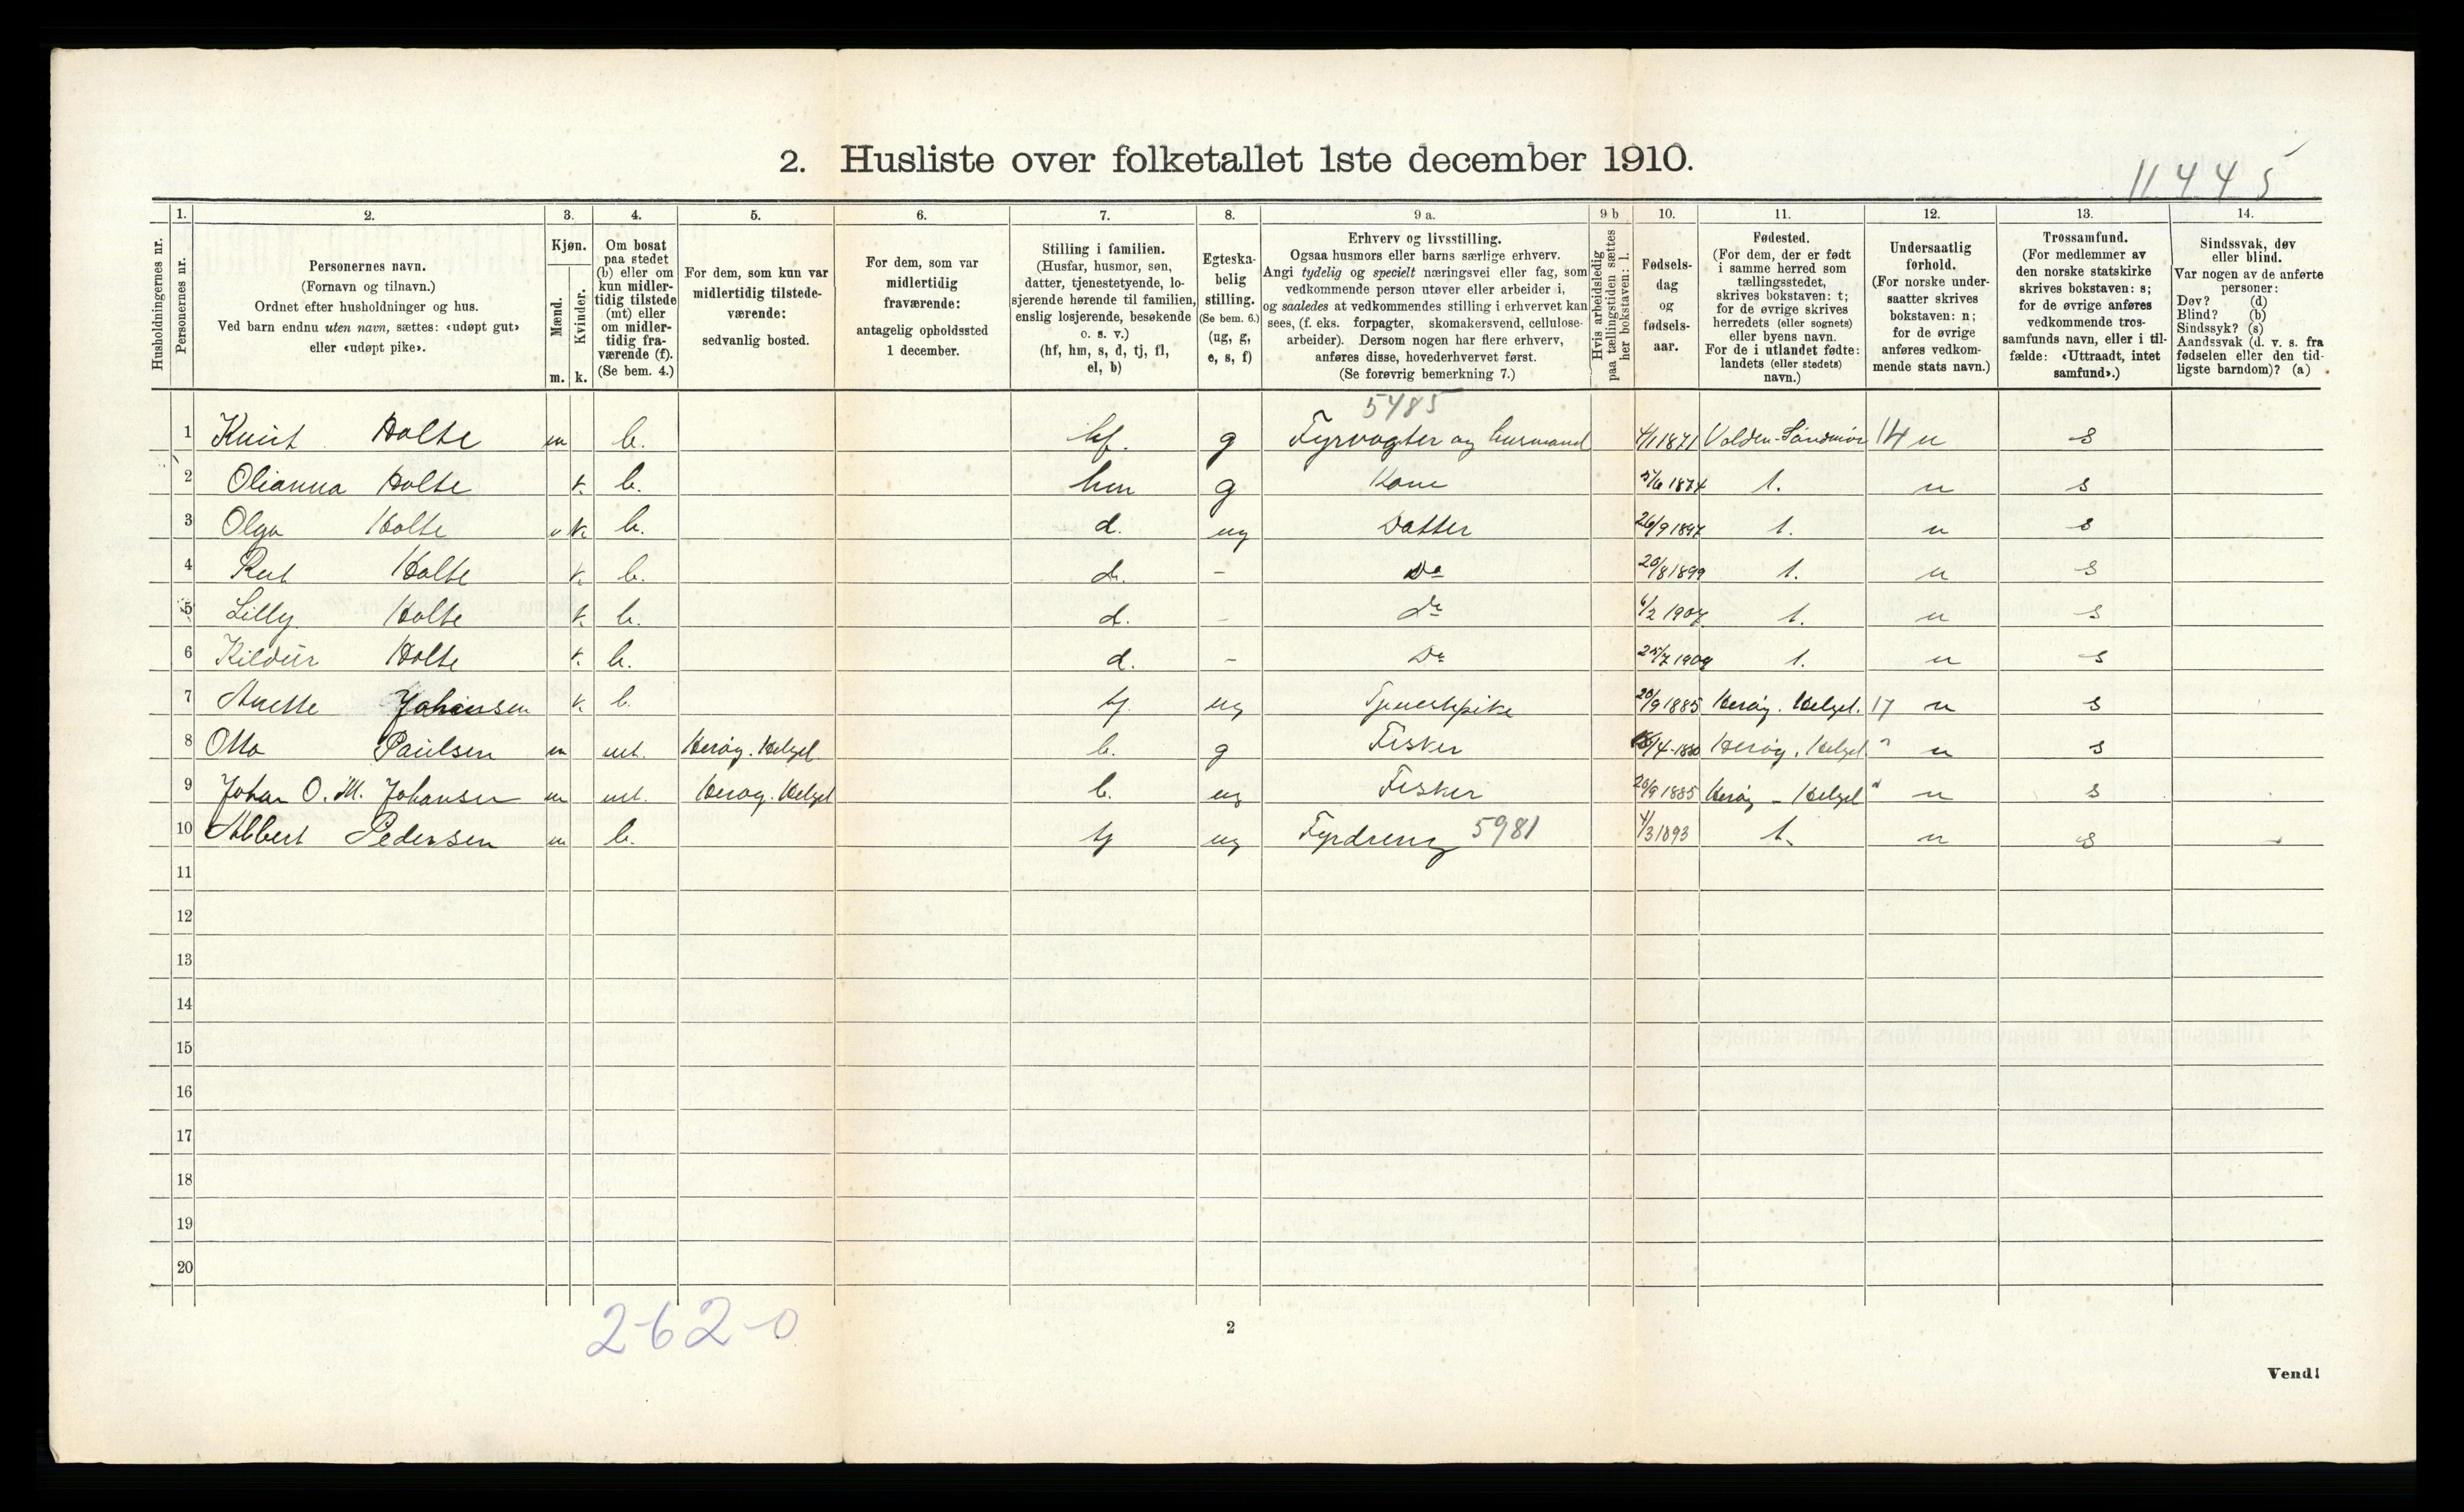 2. Husliste over folketallet 1ste december 1910.
11445
1. 2. 3. 4. 5. 6. 7. 8. 9 a. 9 b 10. 11. 12. 13. 14.
Husholdningernes nr.
Personernes nr.
Personernes navn.
(Fornavn og tilnavn.)
Ordnet efter husholdninger og hus.
Ved barn endnu uten navn, sættes: «udøpt gut»
eller «udøpt pike».
Kjøn.
Mænd.
Kvinder.
m. k.
Om bosat
paa stedet
(b) eller om
kun midler-
tidig tilstede
(mt) eller
om midler-
tidig fra-
værende (f).
(Se bem. 4.)
For dem, som kun var
midlertidig tilstede-
værende:
sedvanlig bosted.
For dem, som var
midlertidig
fraværende:
antagelig opholdssted
1 december.
Stilling i familien.
(Husfar, husmor, søn,
datter, tjenestetyende, lo-
sjerende hørende til familien,
enslig losjerende, besøkende
o. s. v.)
(hf, hm, s, d, tj, fl,
el, b)
Egteska-
belig
stilling.
(Se bem. 6.)
(ug, g,
e, s, f)
Erhverv og livsstilling.
Ogsaa husmors eller barns særlige erhverv.
Angi tydelig og specielt næringsvei eller fag, som
vedkommende person utøver eller arbeider i,
og saaledes at vedkommendes stilling i erhvervet kan
sees, (f. eks. forpagter, skomakersvend, cellulose-
arbeider). Dersom nogen har flere erhverv,
anføres disse, hovederhvervet først.
(Se forøvrig bemerkning 7.)
Hvis arbeidsledig
paa tællingstiden sættes
her bokstaven: l.
Fødsels-
dag
og
fødsels-
aar.
Fødested.
(For dem, der er født
i samme herred som
tællingsstedet,
skrives bokstaven: t;
for de øvrige skrives
herredets (eller sognets)
eller byens navn.
For de i utlandet fødte:
landets (eller stedets)
navn.)
Undersaatlig
forhold.
(For norske under-
saatter skrives
bokstaven: n;
for de øvrige
anføres vedkom-
mende stats navn.)
Trossamfund.
(For medlemmer av
den norske statskirke
skrives bokstaven: s;
for de øvrige anføres
vedkommende tros-
samfunds navn, eller i til-
fælde: «Uttraadt, intet
samfund».)
Sindssvak, døv
eller blind.
Var nogen av de anførte
personer:
Døv? (d)
Blind? (b)
Sindssyk? (s)
Aandssvak (d. v. s. fra
fødselen eller den tid-
ligste barndom)? (a)
5485
1 Knut Holte m b. hf. g Fyrvogter og husmand 4/1 1871 Volden-Søndmør 14 n s
2 Olianna Holte k. b. hm g Kone 1874 t. n s
3 Olga Holte k. b. d. ug Datter 26/9 1897 t. n s
4 Rut Holte k. b. d. - Do 20/8 1899 t. n s
5 Lilly Holte k. b. d. - do 6/2 1907 t. n s
6 Kildur Holte k. b. d. - Do 25/7 1909 t. n s
7 Anette Johansen k. b. tj. ug Tjenestpike 20/9 1885 Herøy. Helgel. 17 n s
8 Otto Paulsen m mt. Herøy. Helgel b. g Fisker /4-1880 Herøy. Helgel. " n s
9 Johan O. M. Johansen m mt. Herøy. Helgel b. ug Fisker 20/9 1885 Herøy - Helgel " n s
10 Albert Pedersen m b. tj ug Fyrdreng 5981 4/3 1893 t. n s
11
12
13
14
15
16
17
18
19
20
2-6 2-0
2
Vend!